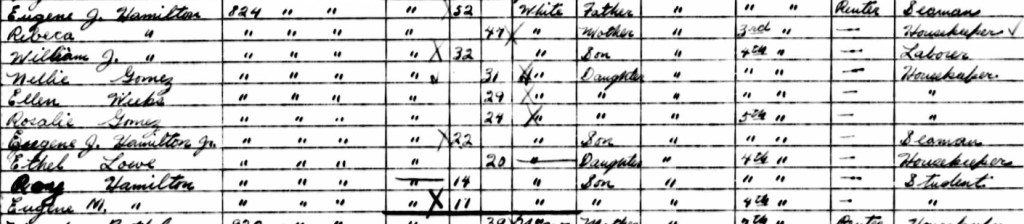 Eugene J. Hamilton 824 " " " 52 White Father " " " " Renter Seamans
Rebeca " " " " " 47 " Mother " 3rd " — Housekeeper
William J. " " " " " 32 " Son " 4th " — Laborer
Nellie Gomez " " " " 31 " Daughter " " " — Housekeeper
Ellen Weeks " " " " 29 " " " " " — "
Rosalie Gomez " " " " 24 " " " 5th " — "
Eugene J. Hamilton Jr. " " " " 22 " Son " " " — Seaman
Ethel Lowe " " " " 20 " Daughter " 4th " — Housekeeper
Roy Hamilton " " " " 14 " Son " " " — Student
Eugene M. " " " " " 11 " " " 4th " — "